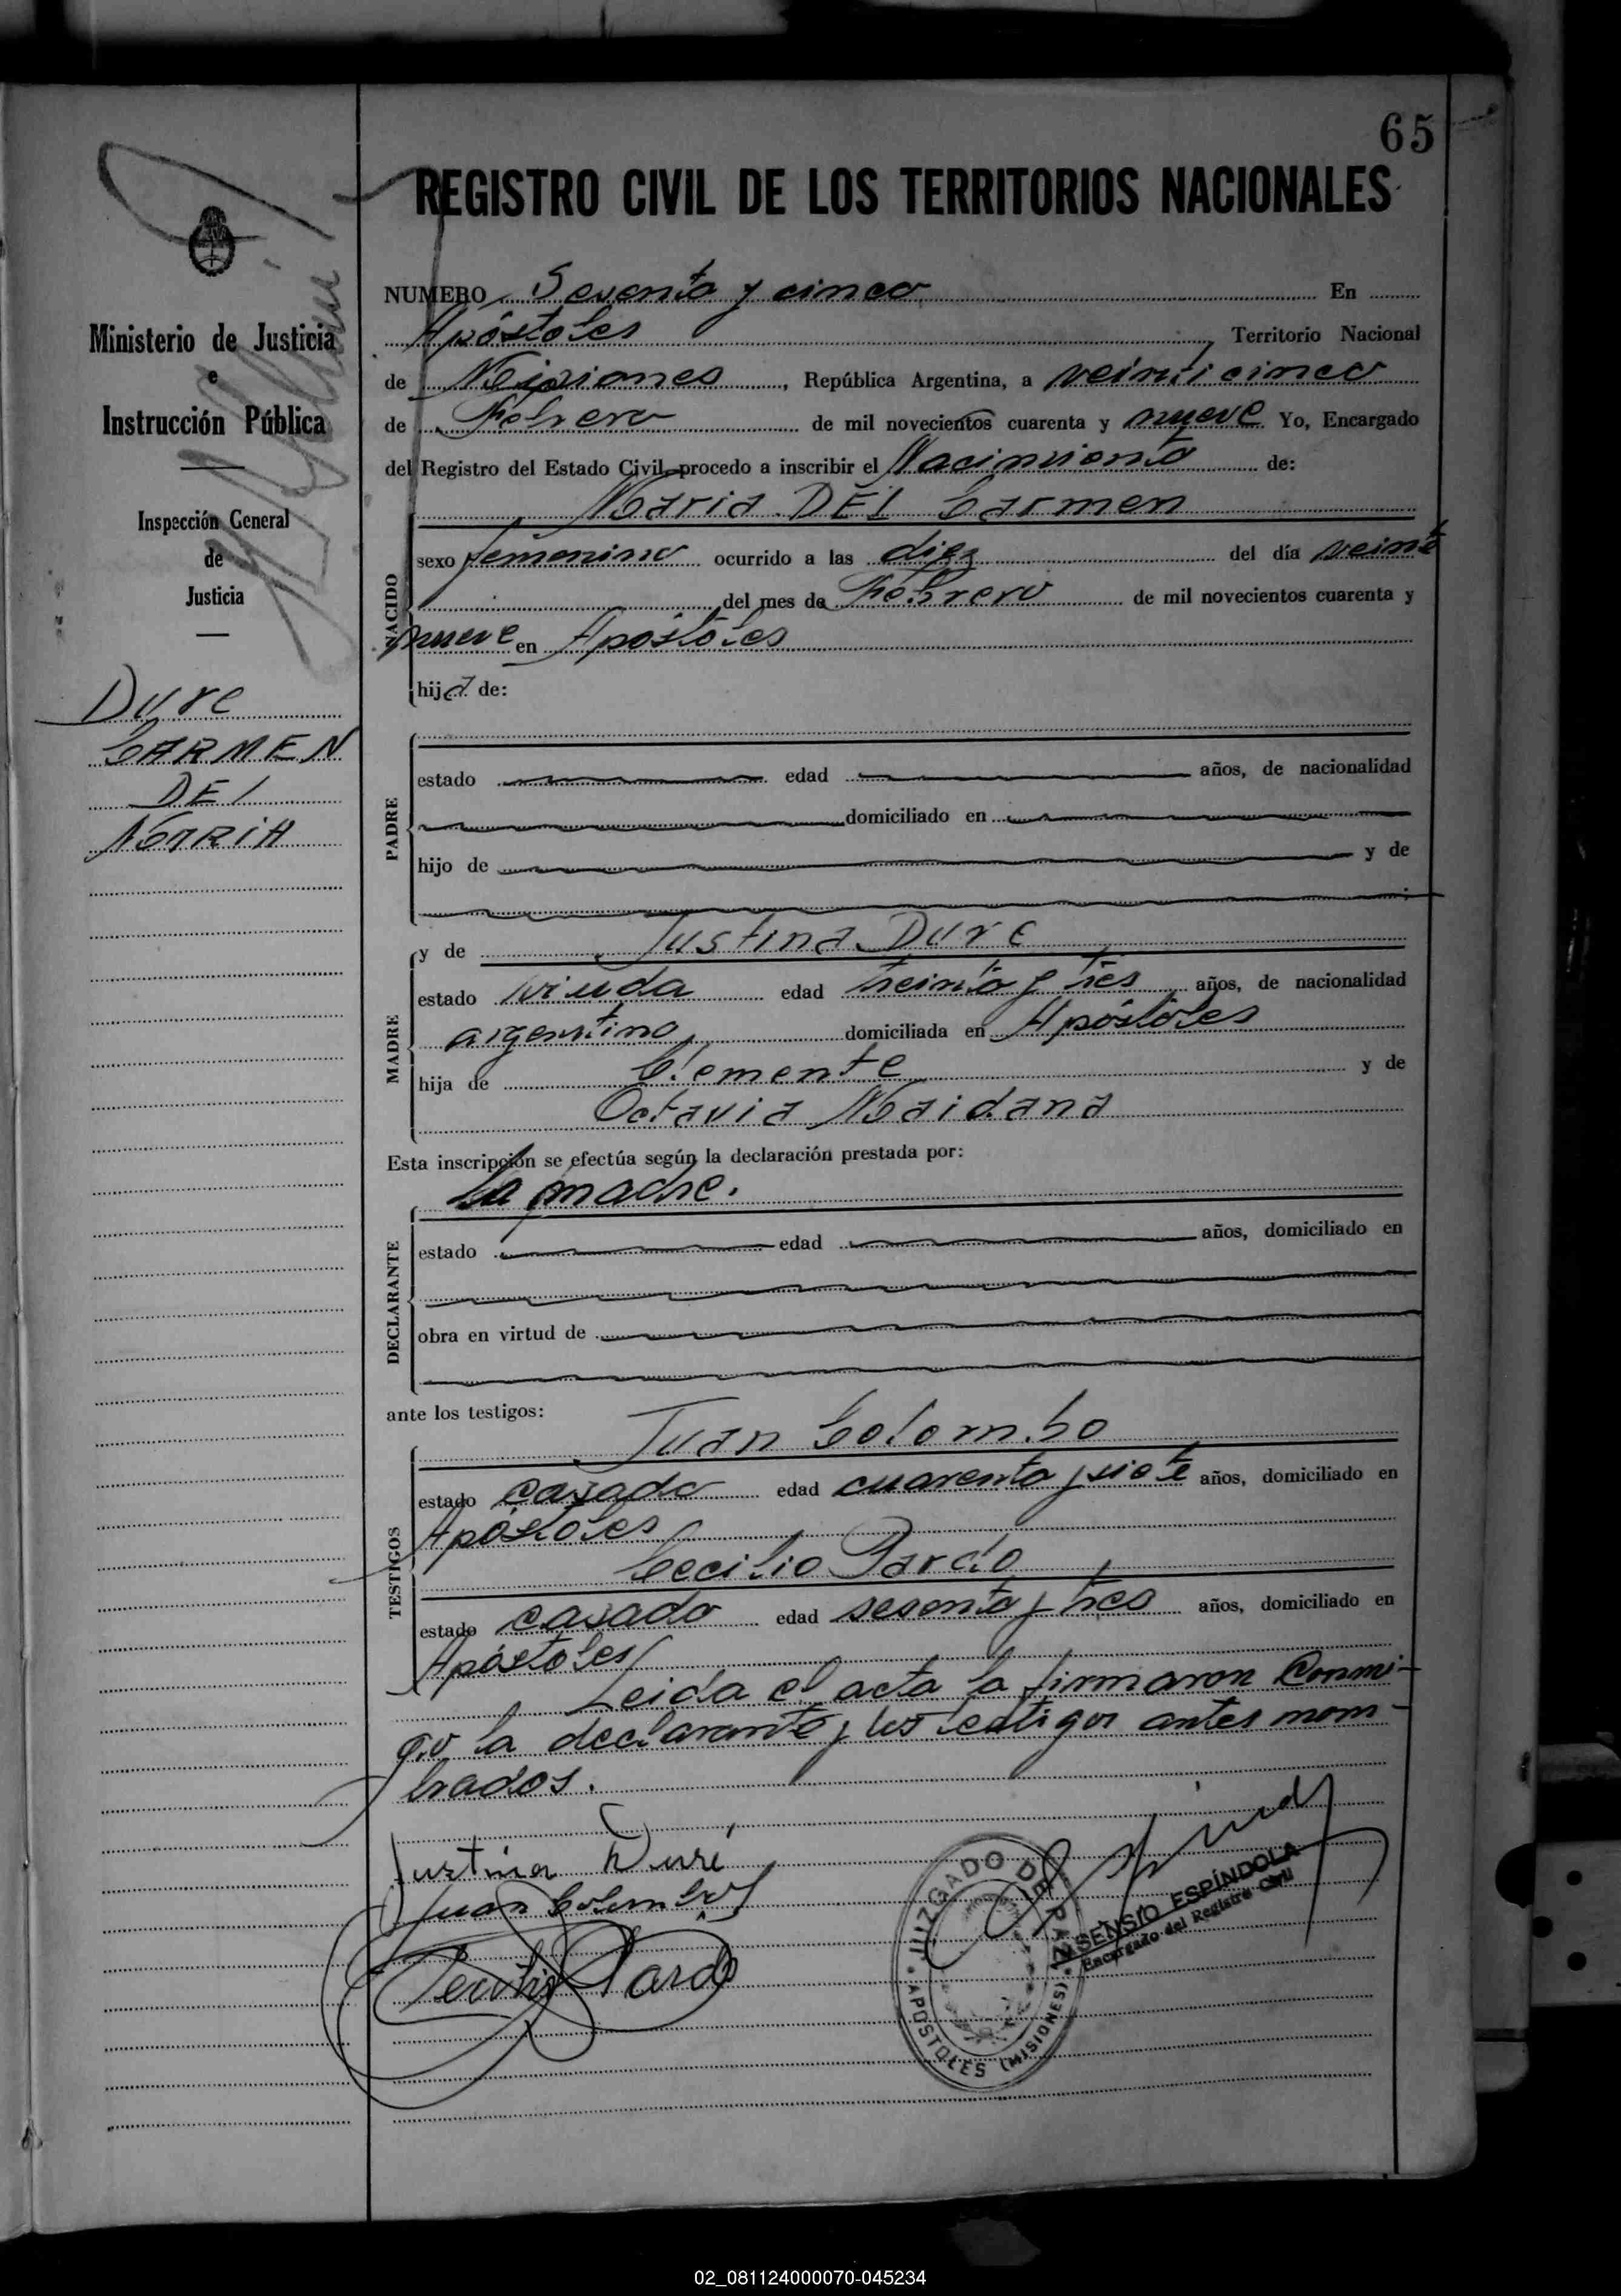 65
REGISTRO CIVIL DE LOS TERRITORIOS NACIONALES
Ministerio de Justicia
e
Instrucción Pública
Inspección General
de
Justicia
Dure
CARMEN
DEL
MARIA
NUMERO Sesenta y cinco En
Apóstoles Territorio Nacional
de Misiones, República Argentina, a veinticinco
de Febrero de mil novecientos cuarenta y nueve Yo, Encargado
del Registro del Estado Civil procedo a inscribir el Nacimiento de:
Maria DEL Carmen
NACIDO
sexo femenino ocurrido a las diez del día veinte
del mes de Febrero de mil novecientos cuarenta y
nueve en Apóstoles
hija de:
PADRE
estado edad años, de nacionalidad
domiciliado en
hijo de y de
MADRE
y de Justina Dure
estado viuda edad treinta y tres años, de nacionalidad
argentina domiciliada en Apóstoles
hija de Clemente y de
Octavia Maidana
Esta inscripción se efectúa según la declaración prestada por:
La madre.
DECLARANTE
estado edad años, domiciliado en
obra en virtud de
ante los testigos:
TESTIGOS
Juan Colombo
estado casado edad cuarenta y siete años, domiciliado en
Apóstoles
Cecilio Pardo
estado casado edad sesenta y tres años, domiciliado en
Apóstoles
Leida el acta la firmaron Conmi-
go la declarante y los testigos antes nom-
brados.
Justina Duré
Juan Colombo
Cecilio Pardo
JUZGADO DE PAZ
APOSTOLES (MISIONES)
ASENSIO ESPÍNDOLA
Encargado del Registro Civil
02_081124000070-045234